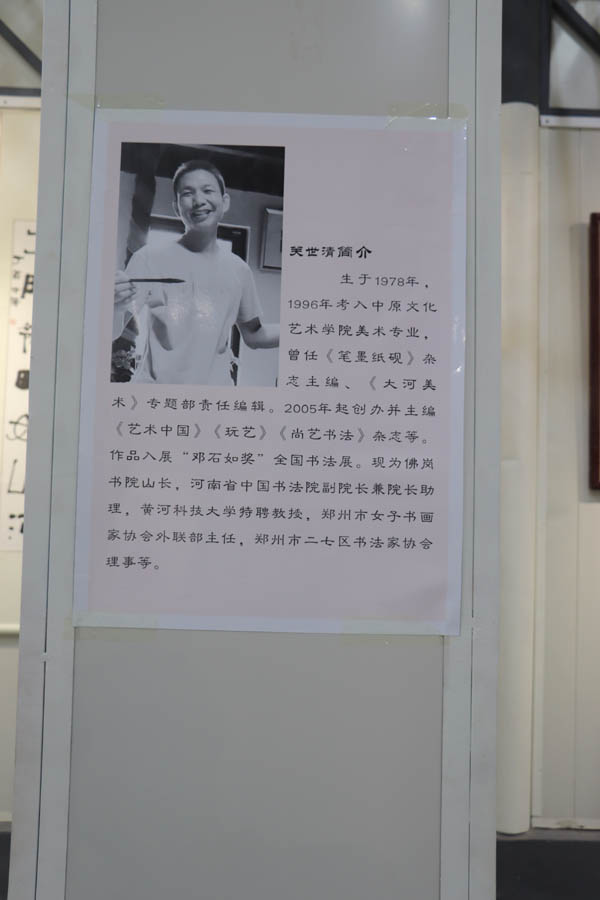 关世清简介
生于1978年，
1996年考入中原文化
艺术学院美术专业，
曾任《笔墨纸砚》杂
志主编、《大河美
术》专题部责任编辑。2005年起创办并主编
《艺术中国》《玩艺》《尚艺书法》杂志等。
作品入展“邓石如奖”全国书法展。现为佛岗
书院山长，河南省中国书法院副院长兼院长助
理，黄河科技大学特聘教授，郑州市女子书画
家协会外联部主任，郑州市二七区书法家协会
理事等。